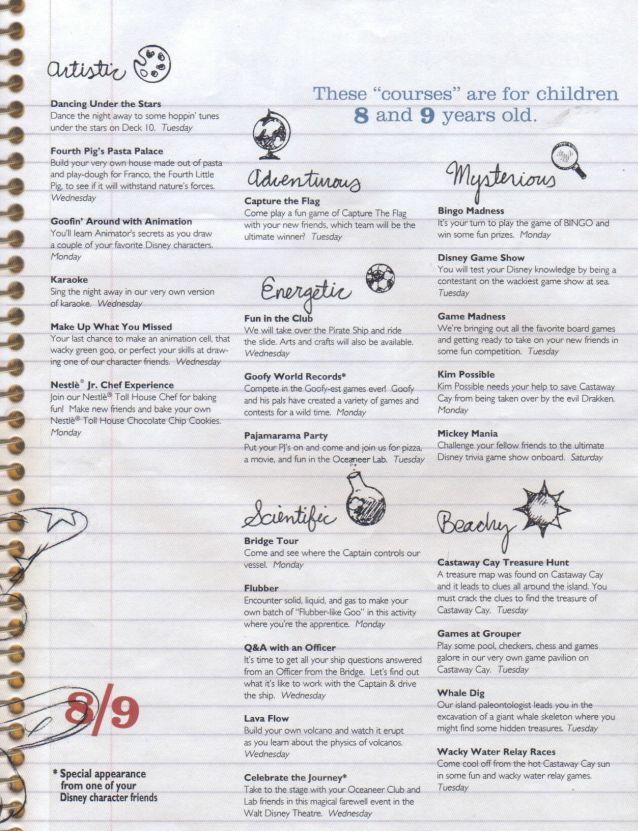 Artistic
Dancing Under the Stars
Dance the night away to some hoppin' tunes
under the stars on Deck 10. Tuesday
Fourth Pig's Pasta Palace
Build your very own house made out of pasta
and play-dough for Franco, the Fourth Little
Pig, to see if it will withstand nature's forces.
Wednesday
Goofin' Around with Animation
You'll learn Animator's secrets as you draw
a couple of your favorite Disney characters.
Monday
Karaoke
Sing the night away in our very own version
of karaoke. Wednesday
Make Up What You Missed
Your last chance to make an animation cell, that
wacky green goo, or perfect your skills at draw-
ing one of our character friends. Wednesday
Nestlè® Jr. Chef Experience
Join our Nestlè® Toll House Chef for baking
fun! Make new friends and bake your own
Nestlè® Toll House Chocolate Chip Cookies.
Monday
8/9
* Special appearance
from one of your
Disney character friends
These "courses" are for children
8 and 9 years old.
Adventurous
Capture the Flag
Come play a fun game of Capture The Flag
with your new friends, which team will be the
ultimate winner? Tuesday
Energetic
Fun in the Club
We will take over the Pirate Ship and ride
the slide. Arts and crafts will also be available.
Wednesday
Goofy World Records*
Compete in the Goofy-est games ever! Goofy
and his pals have created a variety of games and
contests for a wild time. Monday
Pajamarama Party
Put your PJ's on and come and join us for pizza,
a movie, and fun in the Oceaneer Lab. Tuesday
Scientific
Bridge Tour
Come and see where the Captain controls our
vessel. Monday
Flubber
Encounter solid, liquid, and gas to make your
own batch of "Flubber-like Goo" in this activity
where you're the apprentice. Monday
Q&A with an Officer
It's time to get all your ship questions answered
from an Officer from the Bridge. Let's find out
what it's like to work with the Captain & drive
the ship. Wednesday
Lava Flow
Build your own volcano and watch it erupt
as you learn about the physics of volcanos.
Wednesday
Celebrate the Journey*
Take to the stage with your Oceaneer Club and
Lab friends in this magical farewell event in the
Walt Disney Theatre. Wednesday
Mysterious
Bingo Madness
It's your turn to play the game of BINGO and
win some fun prizes. Monday
Disney Game Show
You will test your Disney knowledge by being a
contestant on the wackiest game show at sea.
Tuesday
Game Madness
We're bringing out all the favorite board games
and getting ready to take on your new friends in
some fun competition. Tuesday
Kim Possible
Kim Possible needs your help to save Castaway
Cay from being taken over by the evil Drakken.
Monday
Mickey Mania
Challenge your fellow friends to the ultimate
Disney trivia game show onboard. Saturday
Beachy
Castaway Cay Treasure Hunt
A treasure map was found on Castaway Cay
and it leads to clues all around the island. You
must crack the clues to find the treasure of
Castaway Cay. Tuesday
Games at Grouper
Play some pool, checkers, chess and games
galore in our very own game pavilion on
Castaway Cay. Tuesday
Whale Dig
Our island paleontologist leads you in the
excavation of a giant whale skeleton where you
might find some hidden treasures. Tuesday
Wacky Water Relay Races
Come cool off from the hot Castaway Cay sun
in some fun and wacky water relay games.
Tuesday